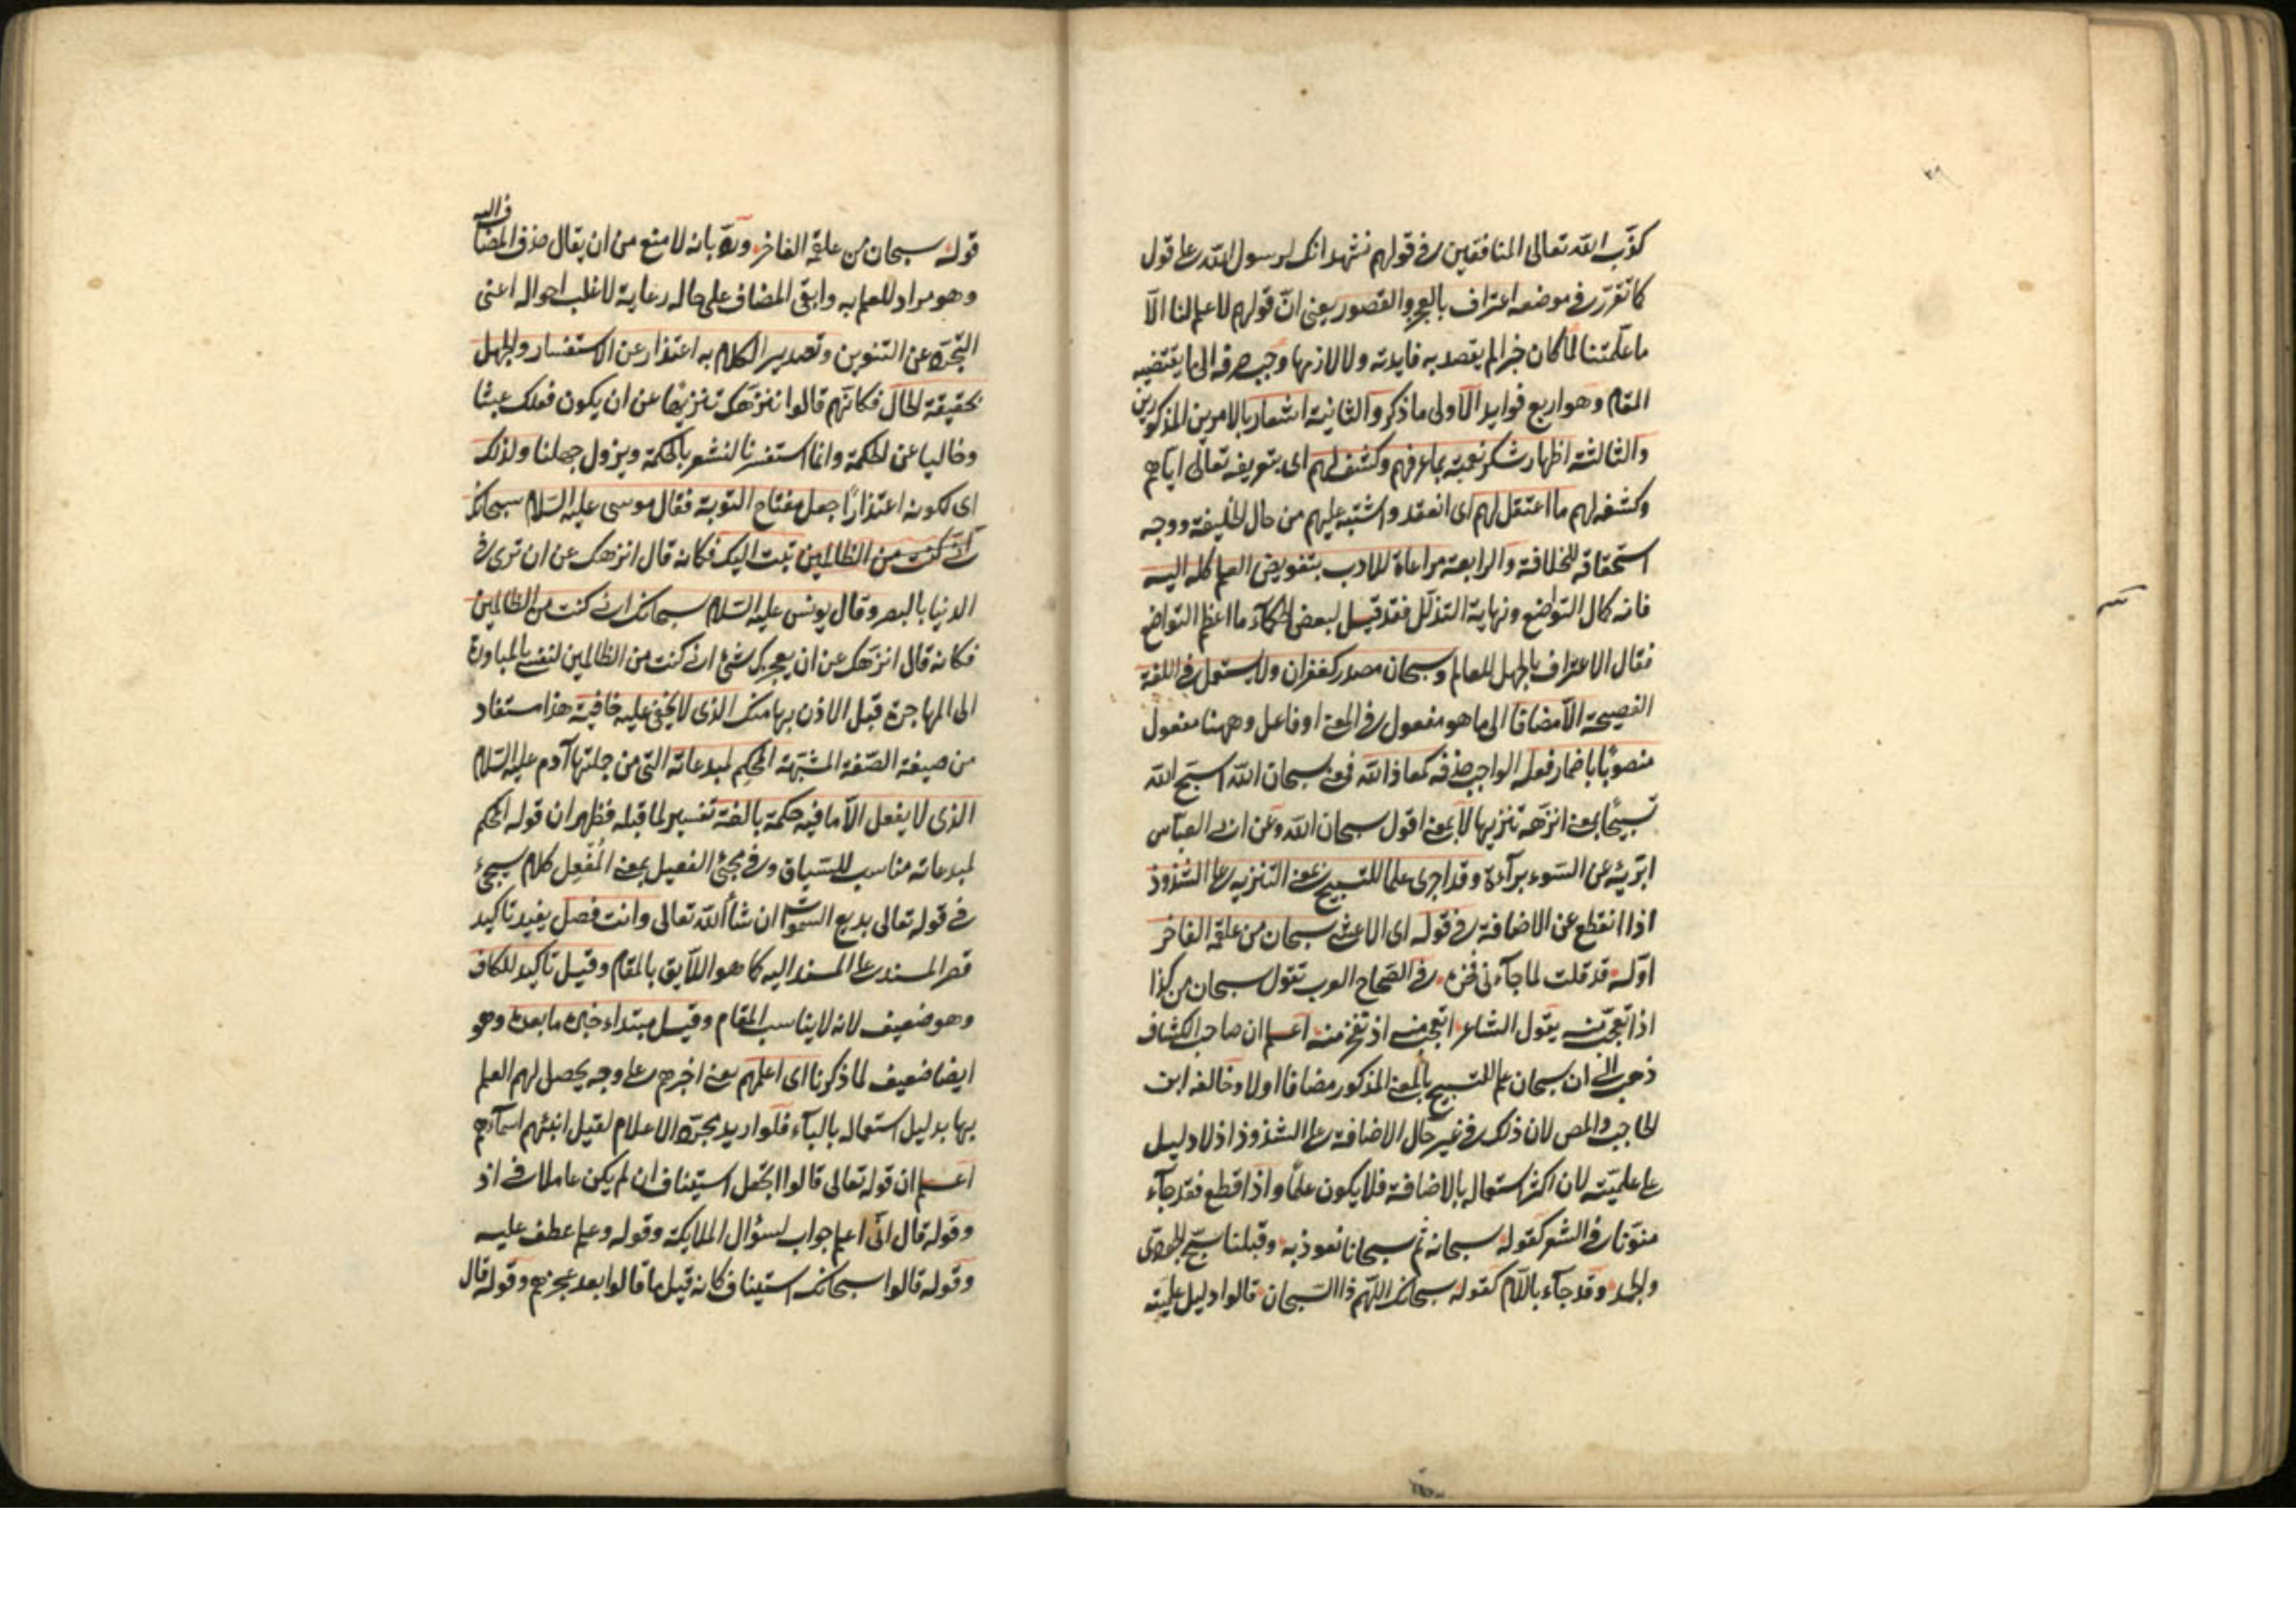 كذّب الله تعالى المنافقين في قولهم نشهد انك لرسول الله على قول
كما تقرّر في موضعه اعتراف بالعجز والقصور يعنى انّ قولهم لا علم لنا الّا
ما علّمتنا لمّا كان خبرا لم يقصد به فايدته ولا لازمها وجب صرفه الى ما يقتضيه
المقام وهو اربع فوايد الاولى ما ذكر والثانية اشعار بالامرين المذكورين
والثالثة اظهار شكر نعمته بما عرفهم وكشف لهم اى بتعريفه تعالى اياهم
وكشفه لهم ما اعتقل لهم اى انعقد واشتبه عليهم من حال الخليفة ووجه
استحقاقه للخلافة والرابعة مراعاة للادب بتفويض العلم كله اليه
فانه كمال التواضع ونهاية التذلّل فقد قيل لبعض الحكمآء ما اعظم التواضع
فقال الاعتراف بالجهل للعالم وسبحان مصدر كغفران ولا يستعمل في اللغة
الفصيحة الّا مضافا الى ما هو مفعول في المعنى او فاعل وههنا مفعول
منصوبًا باضمار فعله الواجب حذفه كمعاذ الله فمعنى سبحان الله اسبّح الله
تسبيحًا بمعنى انزّهه تنزيها لا بمعنى اقول سبحان الله وعن ابن العباس
ابرّئه عن السوء برآءة وقد اجرى علما للتسبيح بمعنى التنزيه على الشذوذ
اذا انقطع عن الاضافة في قوله اى الاعشى سبحان من علقمة الفاخر
اوّله قد قلت لما جآءنى فخره في الصحاح العرب تقول سبحان من كذا
اذا تعجّبت منه يقول الشاعر اتعجب منه اذ تفخر منه اعلم ان صاحب الكشاف
ذهب الى ان سبحان علم للتسبيح بالمعنى المذكور مضافا او لا وخالفه ابن
الحاجب والمص لان ذلك في غير حال الاضافة على الشذوذ اذ لا دليل
على علميّته لان اكثر استعماله بالاضافة فلا يكون علمًا واذا قطع فقد جآء
منوّنا في الشعر كقوله سبحانه ثم سبحانا نعوذ به وقبلنا سبّح الجودىّ
والجمد وقد جآء باللّام كقوله سبحانك اللهم ذا السبحان قالوا دليل علميّته
قوله سبحان من علقمة الفاخر وردّ بانه لا منع من ان يقال حذف المضاف اليه
وهو مراد للعلم به وابقى المضاف على حاله رعاية لاغلب احواله اعنى
التجرّد عن التنوين وتصدير الكلام به اعتذار عن الاستفسار والجهل
بحقيقة الحال فكانّهم قالوا ننزّهك تنزيهًا عن ان يكون فعلك عبثا
وخاليا عن الحكمة وانما استفسرنا لنشعر بالحكمة ويزول جهلنا ولذلك
اى لكونه اعتذارًا جعل مفتاح التوبة فقال موسى عليه السلام سبحانك
انى كنت من الظالمين تبت اليك فكانه قال انزهك عن ان ترى في
الدنيا بالبصر وقال يونس عليه السلام سبحانك انى كنت من الظالمين
فكانه قال انزّهك عن ان يعجزك شئ انى كنت من الظالمين لنفسى بالمبادرة
الى المهاجرة قبل الاذن بها منك الذى لا يخفى عليه خافية هذا مستفاد
من صيغة الصفة المشبّهة المحكم لمبدعاته التى من جملتها آدم عليه السلام
الذى لا يفعل الّا ما فيه حكمة بالغة تفسير لما قبله فظهر ان قوله المحكم
لمبدعاته مناسب للسياق وفي مجئ الفعيل بمعنى المُفعِل كلام سيجئ
في قوله تعالى بديع السموات ان شاء الله تعالى وانت فصل يفيد تاكيد
قصر المسند على المسند اليه كما هو اللّايق بالمقام وقيل تاكيد للكاف
وهو ضعيف لانه لا يناسب المقام وقيل مبتداء خبره ما بعده وهو
ايضا ضعيف لما ذكرنا اى اعلمهم يعنى اخبرهم على وجه يحصل لهم العلم
بها بدليل استعماله بالبآء فلو اريد مجرّد الاعلام لقيل انبئهم اسمآءهم
اعلم ان قوله تعالى قالوا اتجعل استيناف ان لم يكن عاملا في اذ
وقوله قال انّى اعلم جواب لسؤال الملايكة وقوله وعلم عطف عليه
وقوله قالوا سبحانك استيناف كانه قيل ما قالوا بعد عجزهم وقوله قال